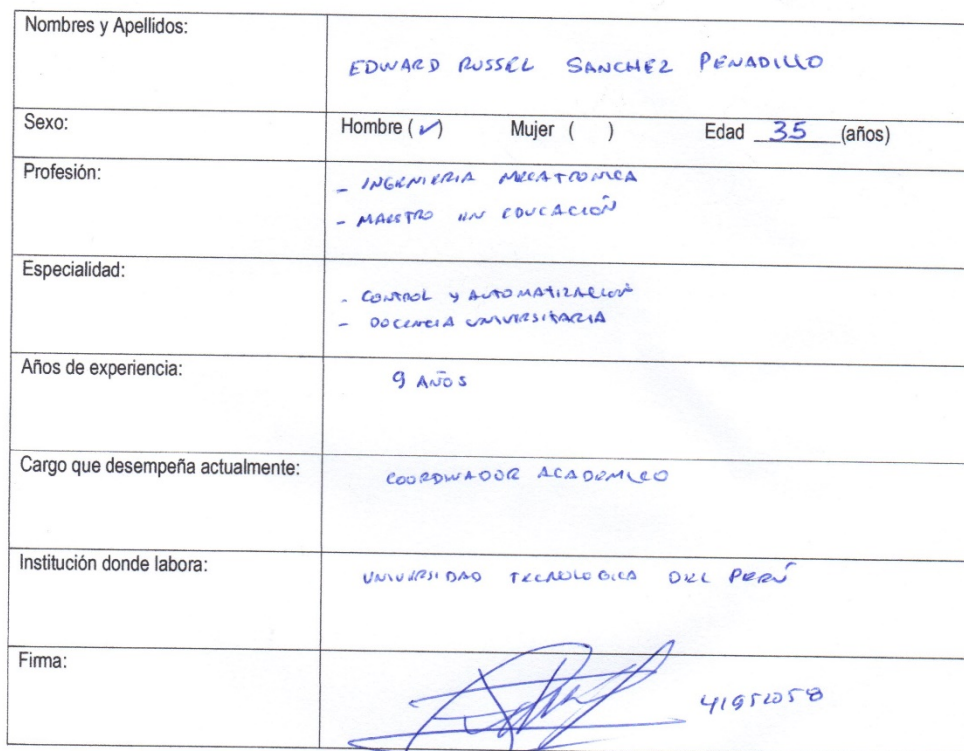 Nombres y Apellidos:
EDWARD RUSSEL SANCHEZ PENADILLO
Sexo: Hombre (✓) Mujer ( ) Edad 35 (años)
Profesión:
- INGENIERIA MECATRONICA
- MAESTRO EN EDUCACIÓN
Especialidad:
- CONTROL Y AUTOMATIZACIÓN
- DOCENCIA UNIVERSITARIA
Años de experiencia:
9 AÑOS
Cargo que desempeña actualmente:
COORDINADOR ACADEMICO
Institución donde labora:
UNIVERSIDAD TECNOLOGICA DEL PERÚ
Firma: